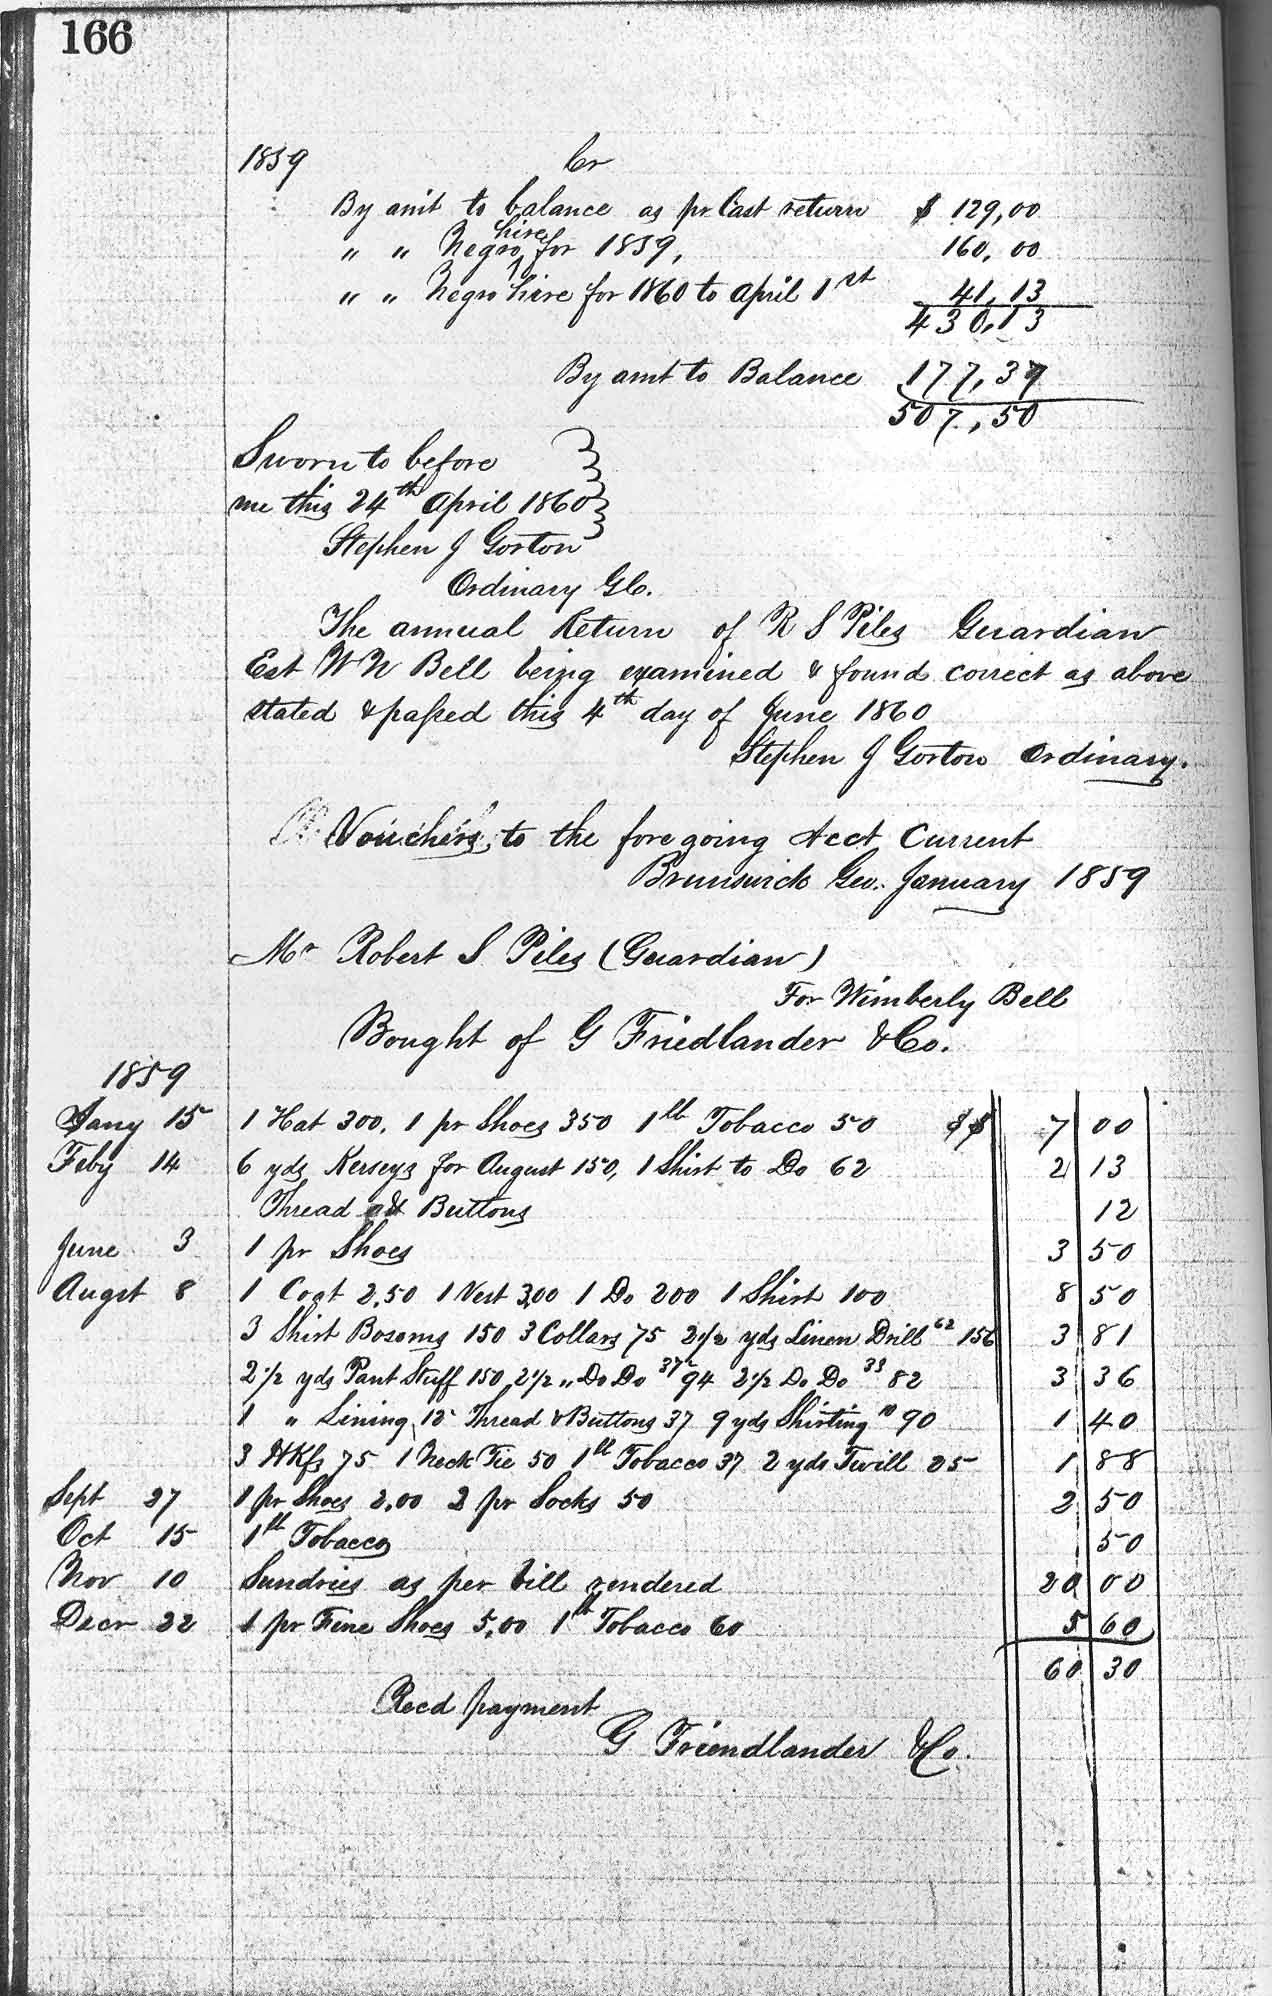 166
1859 Cr
By amt to balance as pr Last return $ 129,00
" " Negro hire for 1859, 160,00
" " Negro hire for 1860 to April 1st 41,13
430,13
By amt to Balance 177,37
507,50
Sworn to before
me this 24th April 1860
Stephen J Gorton
Ordinary G C.
The annual Return of R S Piles Guardian
Est W W Bell being examined & found correct as above
stated & passed this 4th day of June 1860
Stephen J Gorton Ordinary.
Vouchers to the foregoing Acct Current
Brunswick Geo. January 1859
Mr Robert S Piles (Guardian)
For Wimberly Bell
Bought of G Friedlander & Co.
1859
Jany 15 1 Hat 300, 1 pr Shoes 350 1 lb Tobacco 50 $$ 7 00
Feby 14 6 yds Kerseys for August 150, 1 Shirt to Do 62 2 13
Thread & Buttons 12
June 3 1 pr Shoes 3 50
Augst 8 1 Coat 2,50 1 Vest 3,00 1 Do 200 1 Shirt 100 8 50
3 Shirt Bosoms 150 3 Collars 75 2 1/2 yds Linen Drill 62 156 3 81
2 1/2 yds Pant Stuff 150, 2 1/2 " Do Do 37 1/2 94 2 1/2 Do Do 33 82 3 36
1 " Lining 12 Thread & Buttons 37 9 yds Shirting 10 90 1 40
3 HKfs 75 1 Neck Tie 50 1 lb Tobacco 37 2 yds Twill 25 1 88
Sept 27 1 pr Shoes 2,00 2 pr Socks 50 2 50
Oct 15 1 lb Tobacco 50
Nov 10 Sundries as per bill rendered 20 00
Decr 22 1 pr Fine Shoes 5,00 1 lb Tobacco 60 5 60
60 30
Recd payment
G Friendlander & Co.